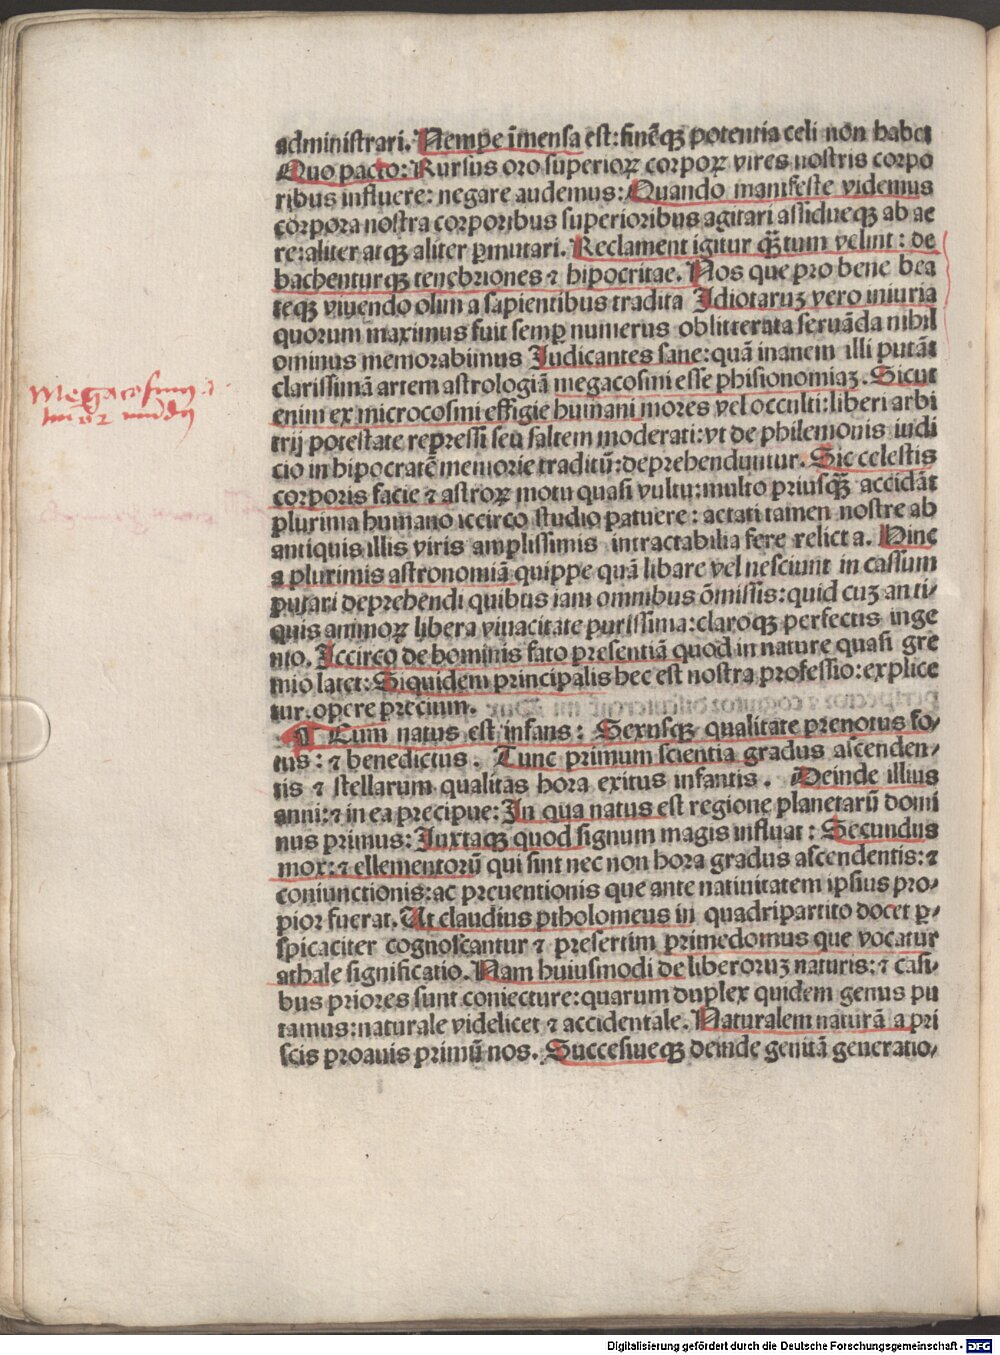 administrari. Nempe īmensa est: finēqꝫ potentia celi non habet
Quo pacto: Rursus oro superioꝝ corpoꝝ vires nostris corpo
ribus influere: negare audemus: Quando manifeste videmus
corpora nostra corporibus superioribus agitari assidueqꝫ ab ae
re: aliter atqꝫ aliter ꝑmutari. Reclament igitur qꝫ̄tum velint: de
bachenturqꝫ tenebriones ⁊ hipocritae. Nos que pro bene bea
teqꝫ viuendo olim a sapientibus tradita Idiotaruꝫ vero iniuria
quorum maximus fuit semꝑ numerus oblitterata seruāda nihil
ominus memorabimus Iudicantes sane: quā inanem illi putāt
clarissimā artem astrologiā megacosmi esse phisionomiaꝫ. Sicut
enim ex microcosmi effigie humani mores vel occulti: liberi arbi
trij potestate repressi seu saltem moderati: vt de philemonis iudi
cio in hipocratē memorie traditū: deprehenduntur. Sic celestis
corporis facie ⁊ astroꝝ motu quasi vultu: multo priusqꝫ̄ accidāt
plurima humano iccirco studio patuere: aetati tamen nostre ab
antiquis illis viris amplissimis intractabilia fere relicta. Hinc
a plurimis astronomiā quippe quā libare vel nesciunt in cassum
putari deprehendi quibus iam omnibus ōmissis: quid cuꝫ anti-
quis animoꝝ libera viuacitate purissima: claroqꝫ perfectis inge
nio. Iccirco de hominis fato presentiā quod in nature quasi gre
mio latet: Siquidem principalis hec est nostra professio: explice
tur. opere precium.
¶ Cum natus est infans: Sexusqꝫ qualitate prenotus fo-
tus: ⁊ benedictus. Tunc primum scientia gradus ascenden-
tis ⁊ stellarum qualitas hora exitus infantis. Deinde illius
anni: ⁊ in ea precipue: In qua natus est regione planetarū domi
nus primus: Iuxtaqꝫ quod signum magis influat: Secundus
mox: ⁊ ellementorū qui sint nec non hora gradus ascendentis: ⁊
coniunctionis: ac preuentionis que ante natiuitatem ipsius pro-
pior fuerat. Ut claudius ptholomeus in quadripartito docet ꝑ-
spicaciter cognoscantur ⁊ presertim prime domus que vocatur
athale significatio. Nam huiusmodi de liberoruꝫ naturis: ⁊ casi-
bus priores sunt coniecture: quarum duplex quidem genus pu
tamus: naturale videlicet ⁊ accidentale. Naturalem naturā a pri
scis proauis primū nos. Succesiueqꝫ deinde genitā generatio-
Megacosmꝫ .i.
Digitalisierung gefördert durch die Deutsche Forschungsgemeinschaft - DFG